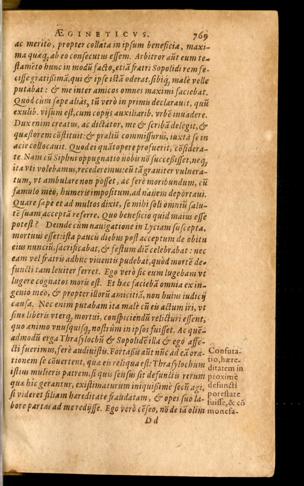 ÆGINETICVS. 769
ac meritò, propter collata in ipsum beneficia, maxi-
ma quæq; ab eo consecutus essem. Arbitror aūt eum te-
stamēto hunc in modū facto, etiā fratri Sopolidi rem fe-
cisse gratissimā, qui & ipse istā oderat, sibiq; malè velle
putabat: & me inter amicos omnes maximi faciebat.
Quod cùm sæpe aliàs, tū verò in primis declarauit, quū
exulib. visum est, cum copijs auxiliarib. vrbē inuadere.
Dux enim creatus, ac dictator, me & scribā delegit, &
quæstorem cōstituit: & præliū commissurus, iuxta se in
acie collocauit. Quod ei quātopere profuerit, cōsidera-
te. Nam cū Siphni oppugnatio nobis nō successisset, neq;
ita vti volebamus, recederemus: eū tā grauiter vulnera-
tum, vt ambulare non posset, ac ferè moribundum, cū
famulo meo, humeris impositum, ad nauem deportaui.
Quare sæpe et ad multos dixit, se mihi soli omniū salu-
tē suam acceptā referre. Quo beneficio quid maius esse
potest? Deinde cùm nauigatione in Lyciam suscepta,
mortuus esset: ista paucis diebus post acceptum de obitu
eius nunciū, sacrificabat, & festum diē celebrabat: nec
eam vel fratris adhuc viuentis pudebat, quòd mortē de-
functi tam leuiter ferret. Ego verò sic eum lugebam vt
lugere cognatos moris est. Et hæc faciebā omnia ex in-
genio meo, & propter illorū amicitiā, non huius iudicij
causa. Nec enim putabam ita malè cū eis actum iri, vt
sine liberis vterq; mortui, conspiciendū relicturi essent,
quo animo vnusquisq; nostrūm in ipsos fuisset. Ac quē-
admodū erga Thrasylochū & Sopolidē illa & ego affe-
cti fuerimus, ferè audiuistis. Fortassis aūt nūc ad eā ora-
tionem se cōuertent, quæ eis reliqua est: Thrasylochum
istius mulieris patrem, si quis sensus sit defunctis rerum
quæ hîc gerantur, existimaturum iniquissimè secū agi,
si videret filiam hæreditate fraudatam, & opes suo la-
bore partas ad me redijsse. Ego verò cēseo, nō de iā olim
Dd
Confuta-
tio, hære-
ditatem in
proximè
defuncti
potestate
fuisse, & cō